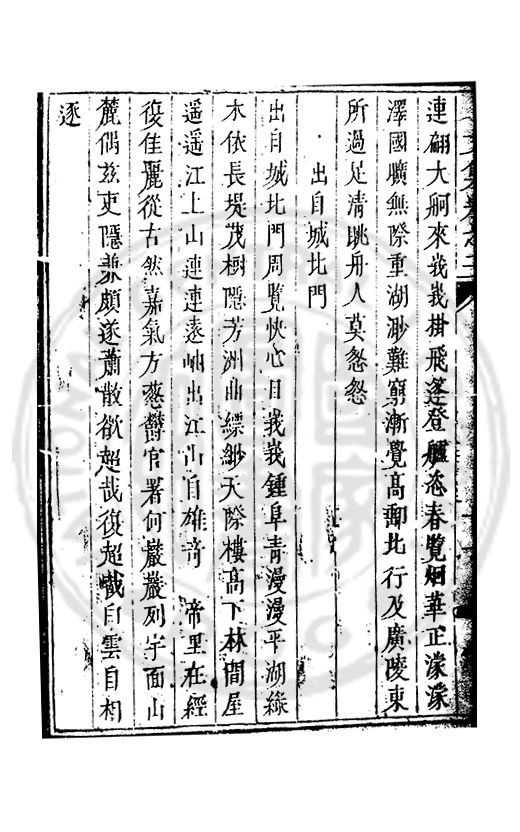 連翩大舸來峩峩掛飛篷登艫恣春覽烟華正濛濛
澤國曠無際重湖渺難窮漸覺高郵北行及廣陵東
所過足清眺舟人莫怱怱
出自城北門
出自城北門周覽快心目峩峩鍾阜青漫漫平湖綠
木依長堤茂樹隱芳洲曲縹緲天際樓高下林間屋
遥遥江上山連連遠岫出江山自雄竒帝里在經
復佳麗從古然嘉氣方葱鬱官署何嚴嚴列宇面山
麓偶兹吏隱兼頗遂蕭散欲超哉復超哉白雲自相
逐
文集卷之二